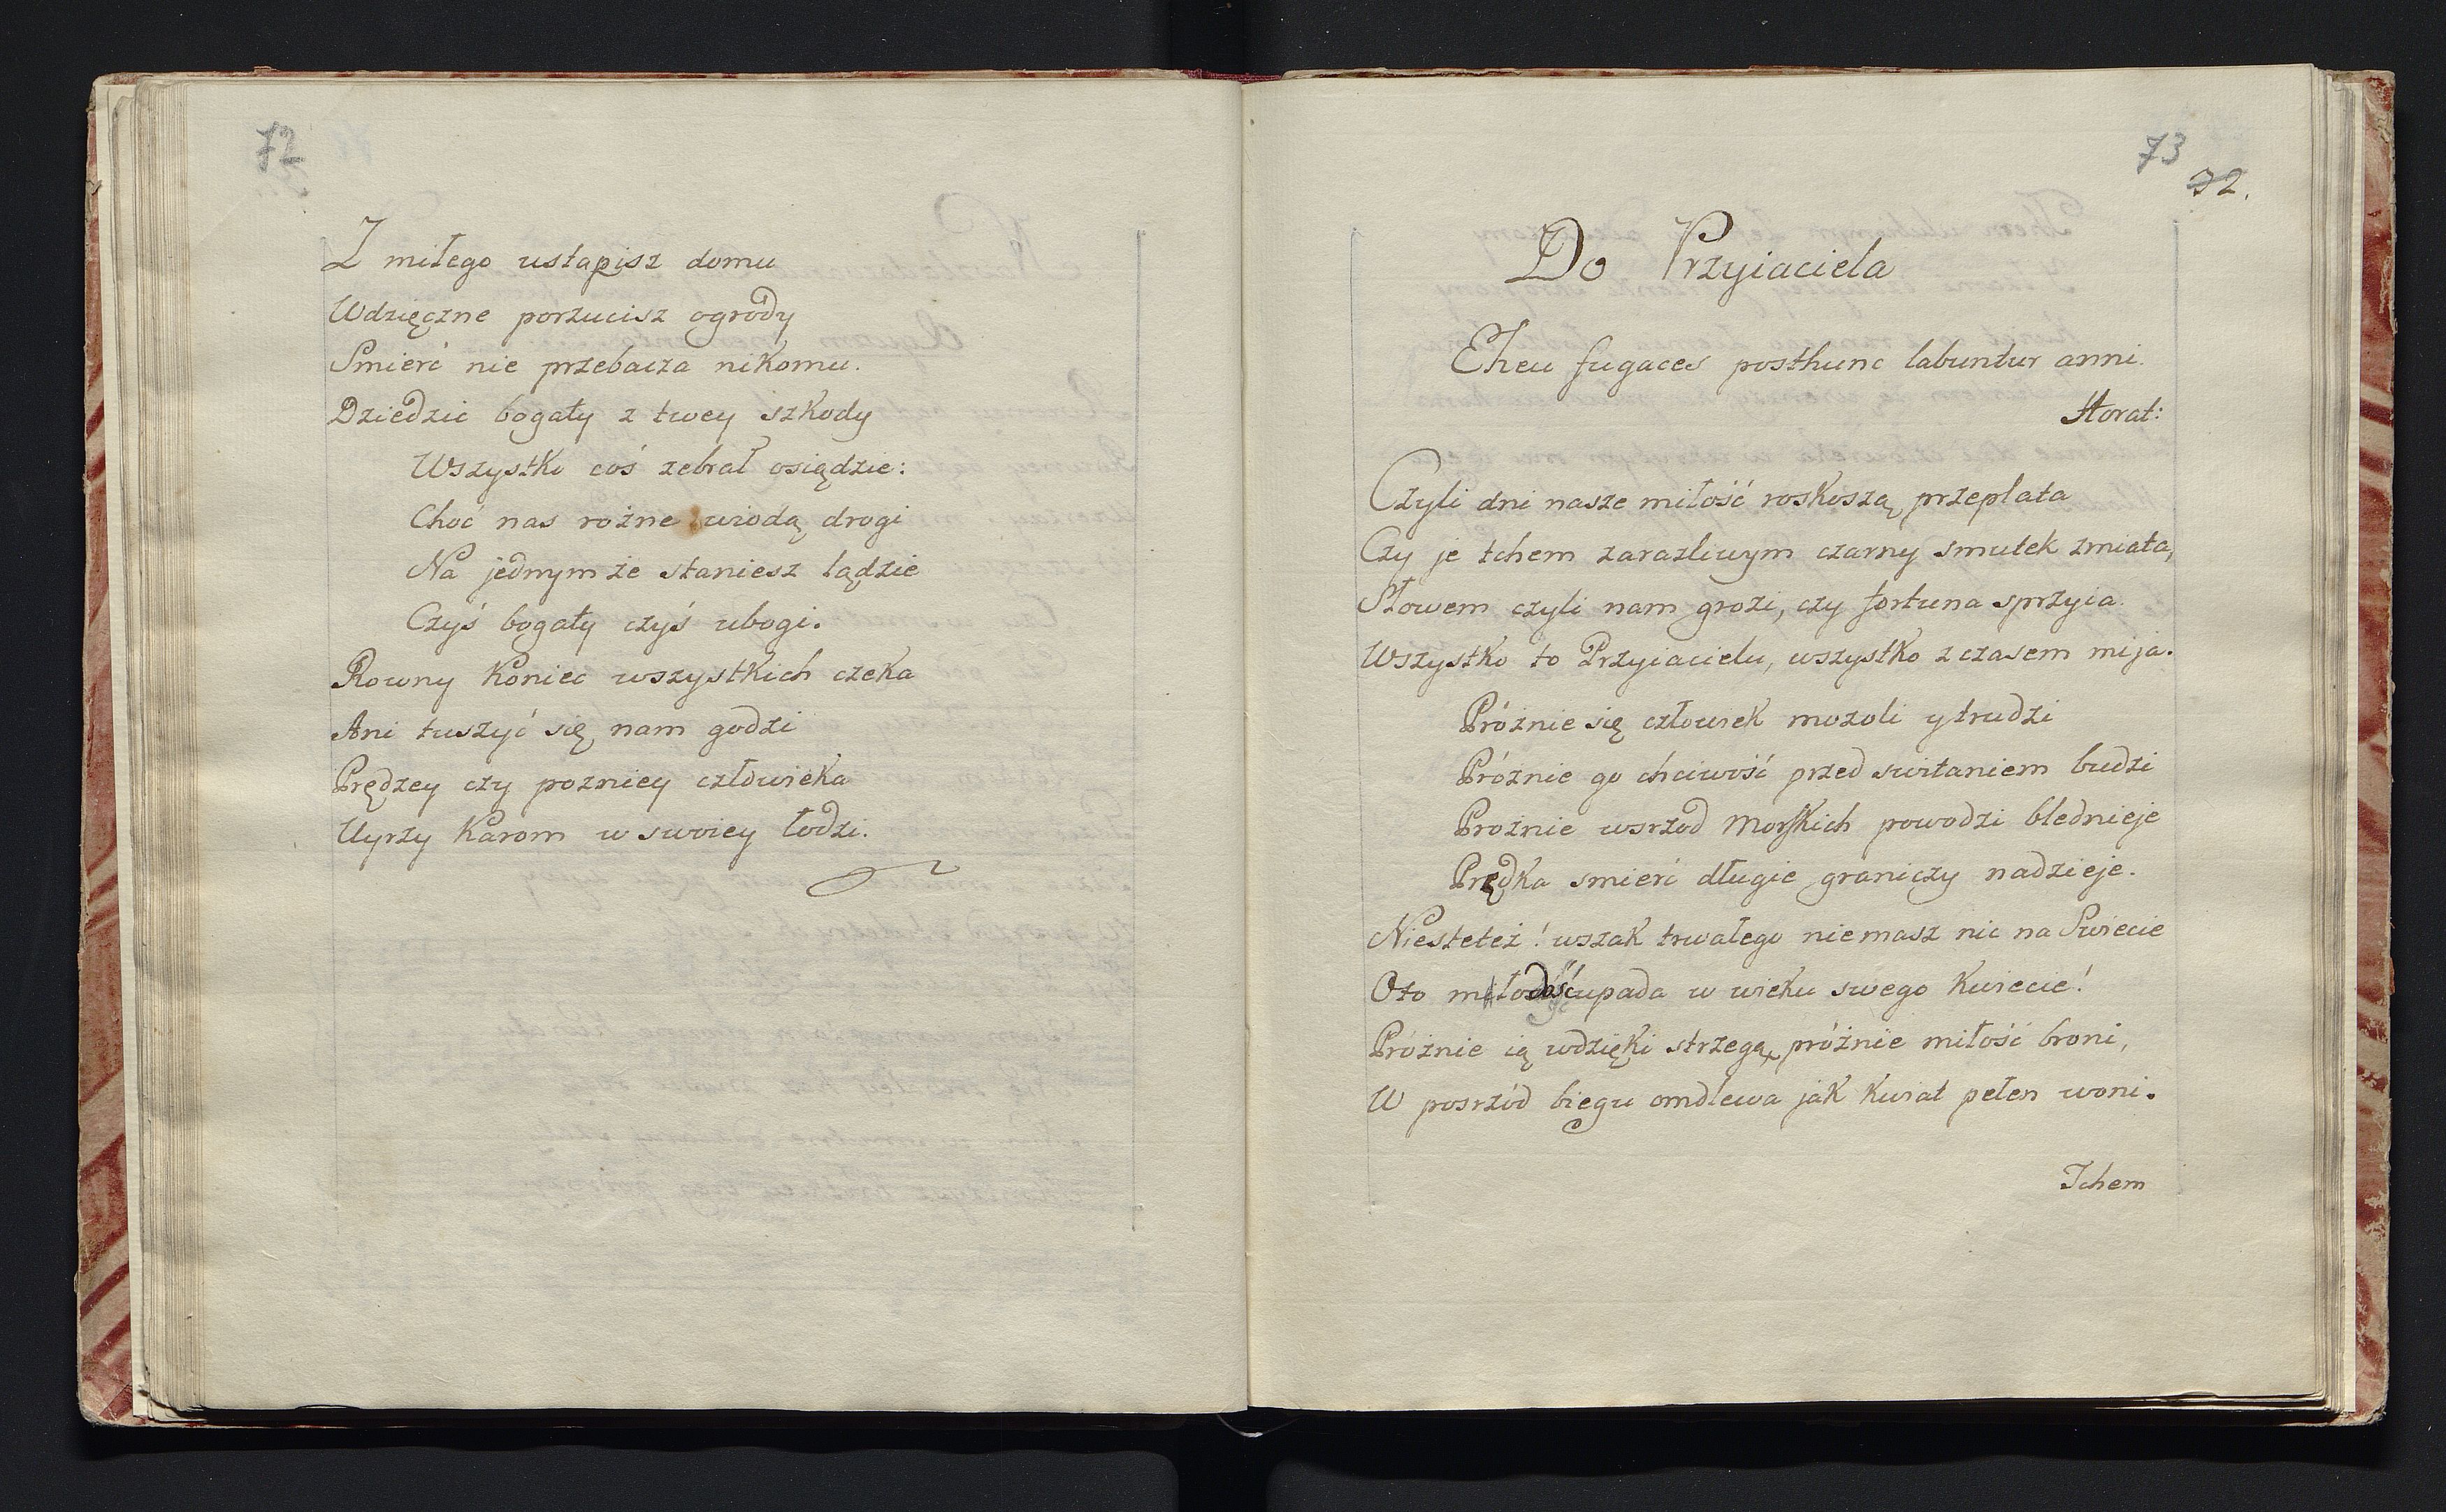 72
Z miłego ustapisz domu
Wdzięczne porzucisz ogrody
Smierć nie przebacza nikomu.
Dziedzic bogaty z twey szkody
Wszystko coś zebrał osiądzie:
Choć nas rożne wiodą drogi
Na jednym że staniesz lądzie
Czyś bogaty czyś ubogi.
Rowny koniec wszystkich czeka
Ani tuszyć się nam godzi
Prędzey czy pozniey człowieka
Uyrzy Karom w swoiey łodzi.
73
72.
Do Przyiaciela
Eheu fugaces posthunc labuntur anni.
Horat:
Czyli dni nasze miłość roskoszą przeplata
Czy je tchem zarazliwym czarny smutek zmiata,
Słowem czyli nam grozi, czy fortuna sprzyia.
Wszystko to Przyiacielu, wszystko z czasem mija.
Próżnie się człowiek mozoli y trudzi
Próżnie go chciwość przed switaniem budzi
Prożnie wsrzod Morskich powodzi blednieje
Prędka smierć długie graniczy nadzieje.
Niestetei! wszak trwałego niemasz nic na Swiecie
Oto młodość upada w wieku swego kwiecie!
Prożnie ią wdzięki strzegą, próżnie miłość broni,
W posrzód biegu omdlewa jak kwiat pełen woni.
Tchem